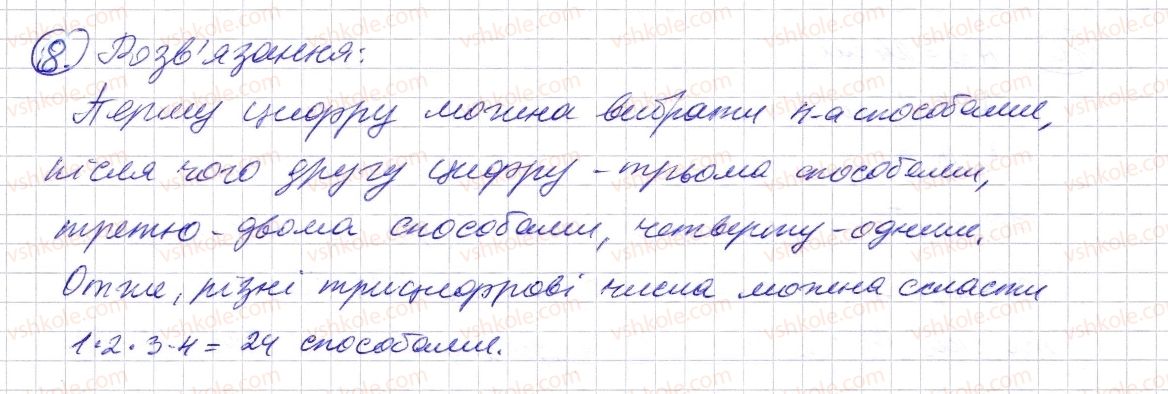 8. Розв'язання:
Першу цифру можна вибрати 4-а способами,
після чого другу цифру - трьома способами,
третю - двома способами, четверту - одним.
Отже, різні трицифрові числа можна скласти
1·2·3·4 = 24 способами.